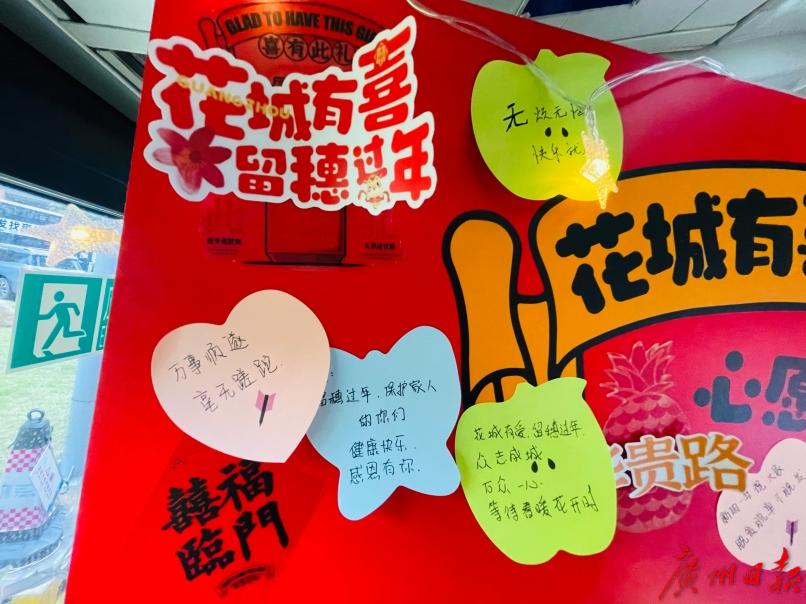 GLAD TO HAVE THIS
喜有此礼
花城有喜
GUANGZHOU
留穗过年
无烦无恼
快乐就
花城有
万事顺遂
毫无蹉跎
留穗过年,保护家人
的你们
健康快乐
感恩有你
花城有爱,留穗过年
众志成城
万众一心
等待春暖花开时
心愿
贵路
囍福
臨門
广州日报